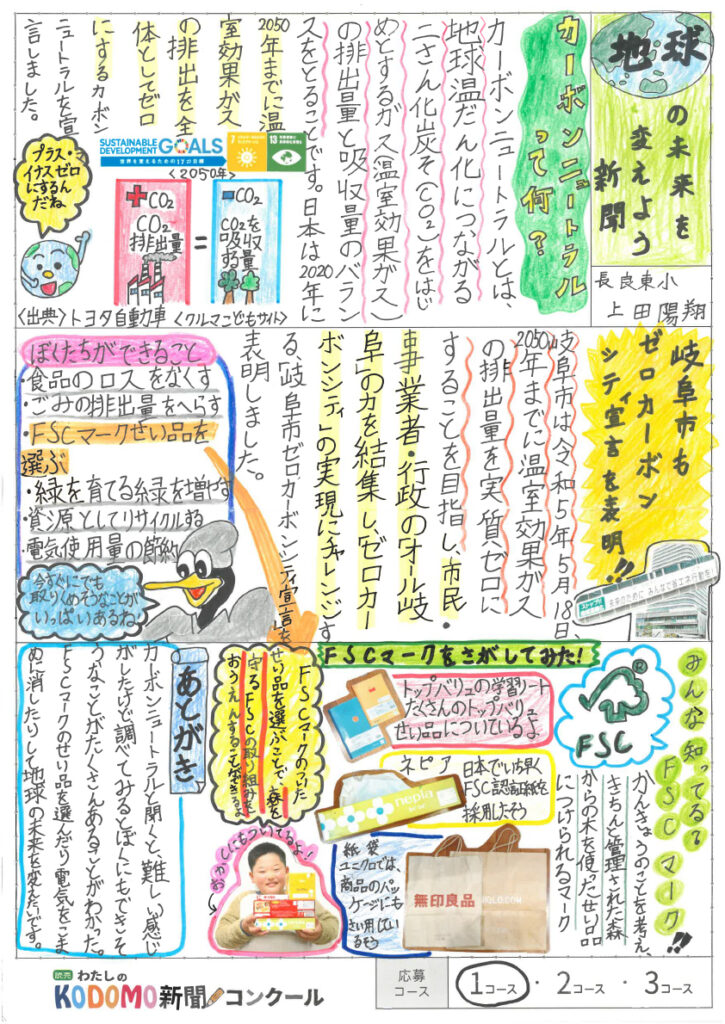 地球
の未来を
変えよう
新聞
長良東小
上田陽翔
カーボンニュートラル
って何?
カーボンニュートラルとは、
地球温だん化につながる
二さん化炭そ(CO₂)をはじ
めとするガス(温室効果ガス)
の排出量と吸収量のバラン
スをとることです。日本は2020年に
2050年までに温
室効果ガス
の排出を全
体としてゼロ
にするカボン
ニュートラルを宣
言しました。
SUSTAINABLE DEVELOPMENT GOALS
世界を変えるための17の目標
7
13
<2050年>
+CO₂
CO₂
排出量
=
-CO₂
CO₂を
吸収
する量
プラス・マ
イナスゼロ
にするん
だね
<出典>トヨタ自動車<クルマこどもサイト>
岐阜市も
ゼロカーボン
シティ宣言を表明!!
岐阜市は令和5年5月18日、
2050年までに温室効果ガス
の排出量を実質ゼロに
することを目指し、市民・
事業者・行政の「オール岐
阜」の力を結集し、「ゼロカー
ボンシティ」の実現にチャレンジす
る、「岐阜市ゼロカーボンシティ宣言」を
表明しました。
未来のために みんなで省エネ行動を!
ぼくたちができること
・食品のロスをなくす
・ごみの排出量をへらす
・FSCマークせい品を
選ぶ
・緑を育てる緑を増やす
・資源としてリサイクルする
・電気使用量の節約
今すぐにでも
取りくめそうなことが
いっぱいあるね
みんな知ってる?
FSCマーク!!
FSC
かんきょうのことを考え、
きちんと管理された森
からの木を使ったせい品
につけられるマーク
FSCマークをさがしてみた!
トップバリュの学習ノート
たくさんのトップバリュ
せい品についているよ。
ネピア
日本でいち早く
FSC認証紙を
採用したそう
nepia
紙袋
ユニクロでは、
商品のパッ
ケージにも
さい用しているそう
無印良品
FSCマークのついた
せい品を選ぶことで、森を
守るFSCの取り組みを
おうえんすることができるよ
おかしにもついてるよ!
あとがき
カーボンニュートラルと聞くと、難しい感じ
がしたけど調べてみるとぼくにもできそ
うなことがたくさんあることがわかった。
FSCマークのせい品を選んだり電気をこま
めに消したりして地球の未来を変えたいです。
読売 わたしの
KODOMO新聞コンクール
応募
コース
1コース・2コース・3コース